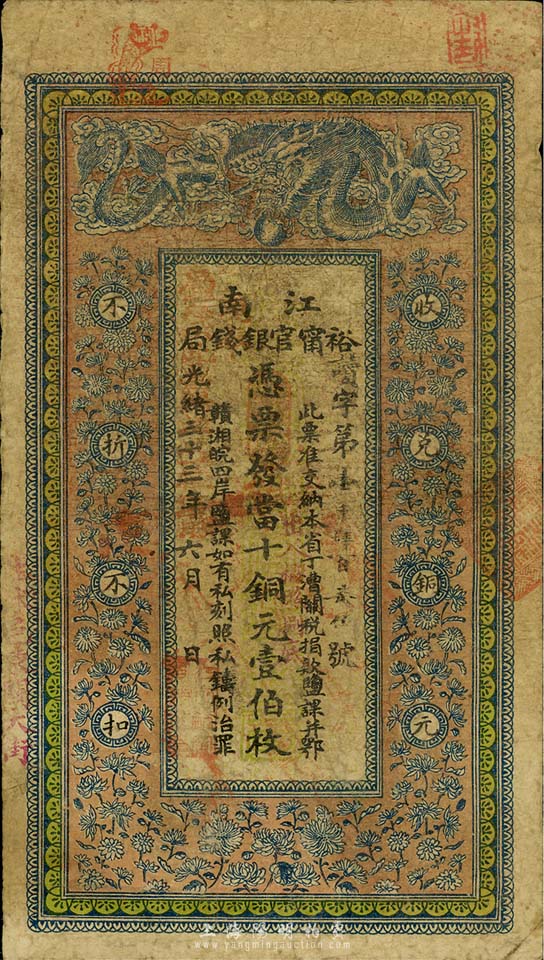 江南
裕甯官銀錢局
字第
號
此票准交納本省丁漕關稅捐款鹽課并鄂
憑票發當十銅元壹佰枚
贛湘皖四岸鹽課如有私刻照私鑄例治罪
光緒三十三年六月 日
收兌銅元
不折不扣
上海陽明拍賣
www.yangmingauction.com